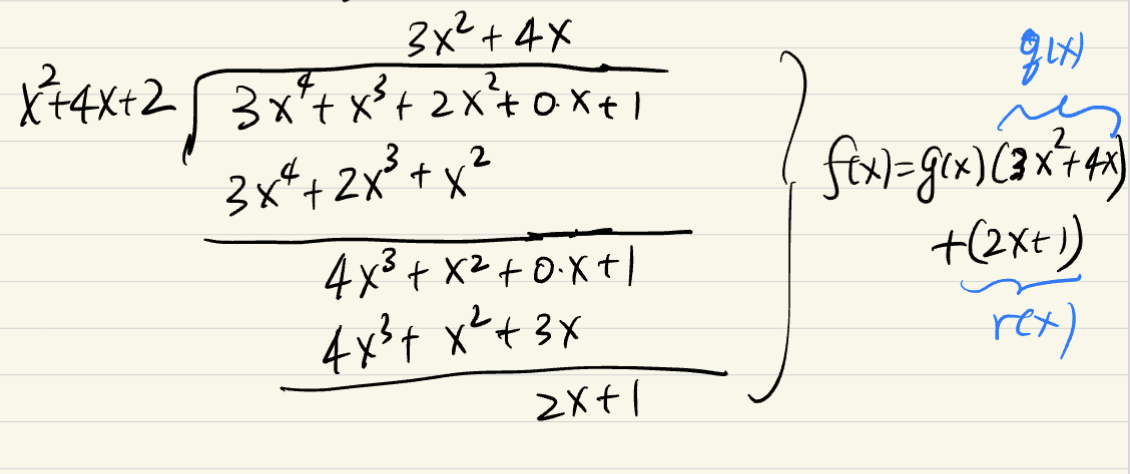 3x² + 4x
x²+4x+2 √ 3x⁴ + x³ + 2x² + 0·x + 1
3x⁴ + 2x³ + x²
4x³ + x² + 0·x + 1
4x³ + x² + 3x
2x+1
q(x)
f(x)=g(x)(3x²+4x)
+(2x+1)
r(x)